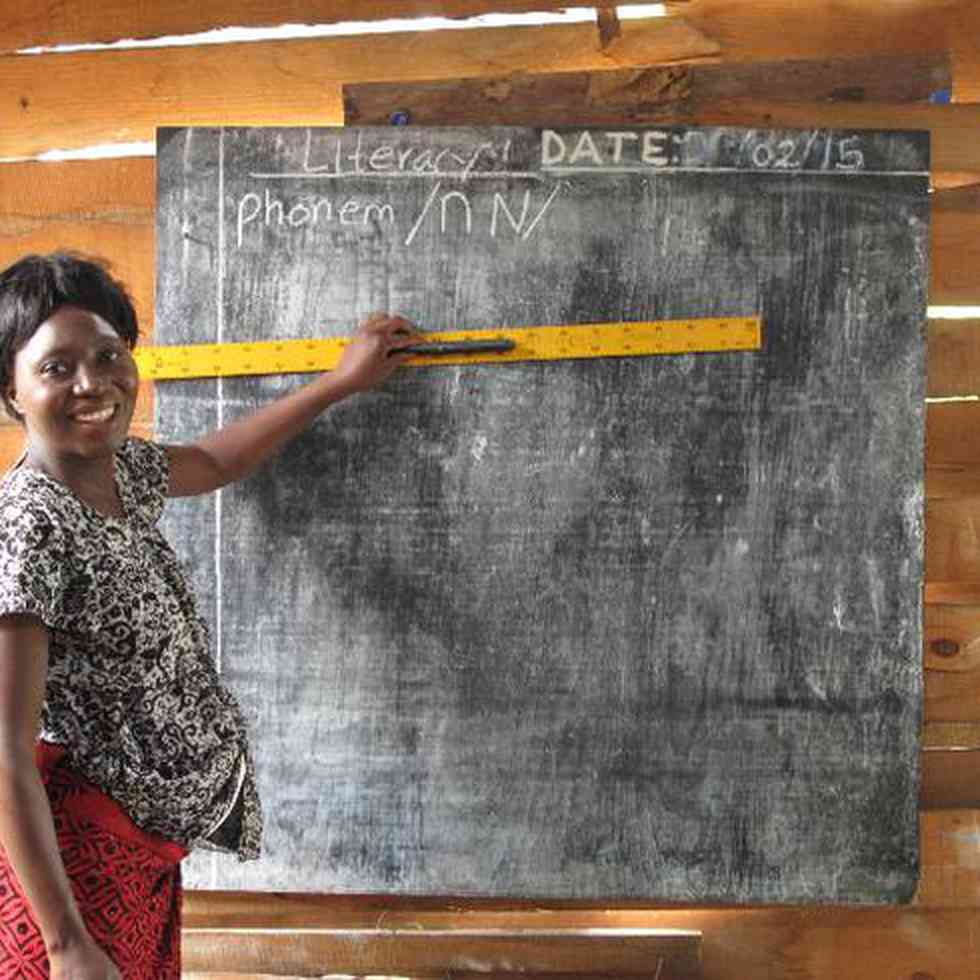 Literacy DATE: /02/15
phonem /n N/